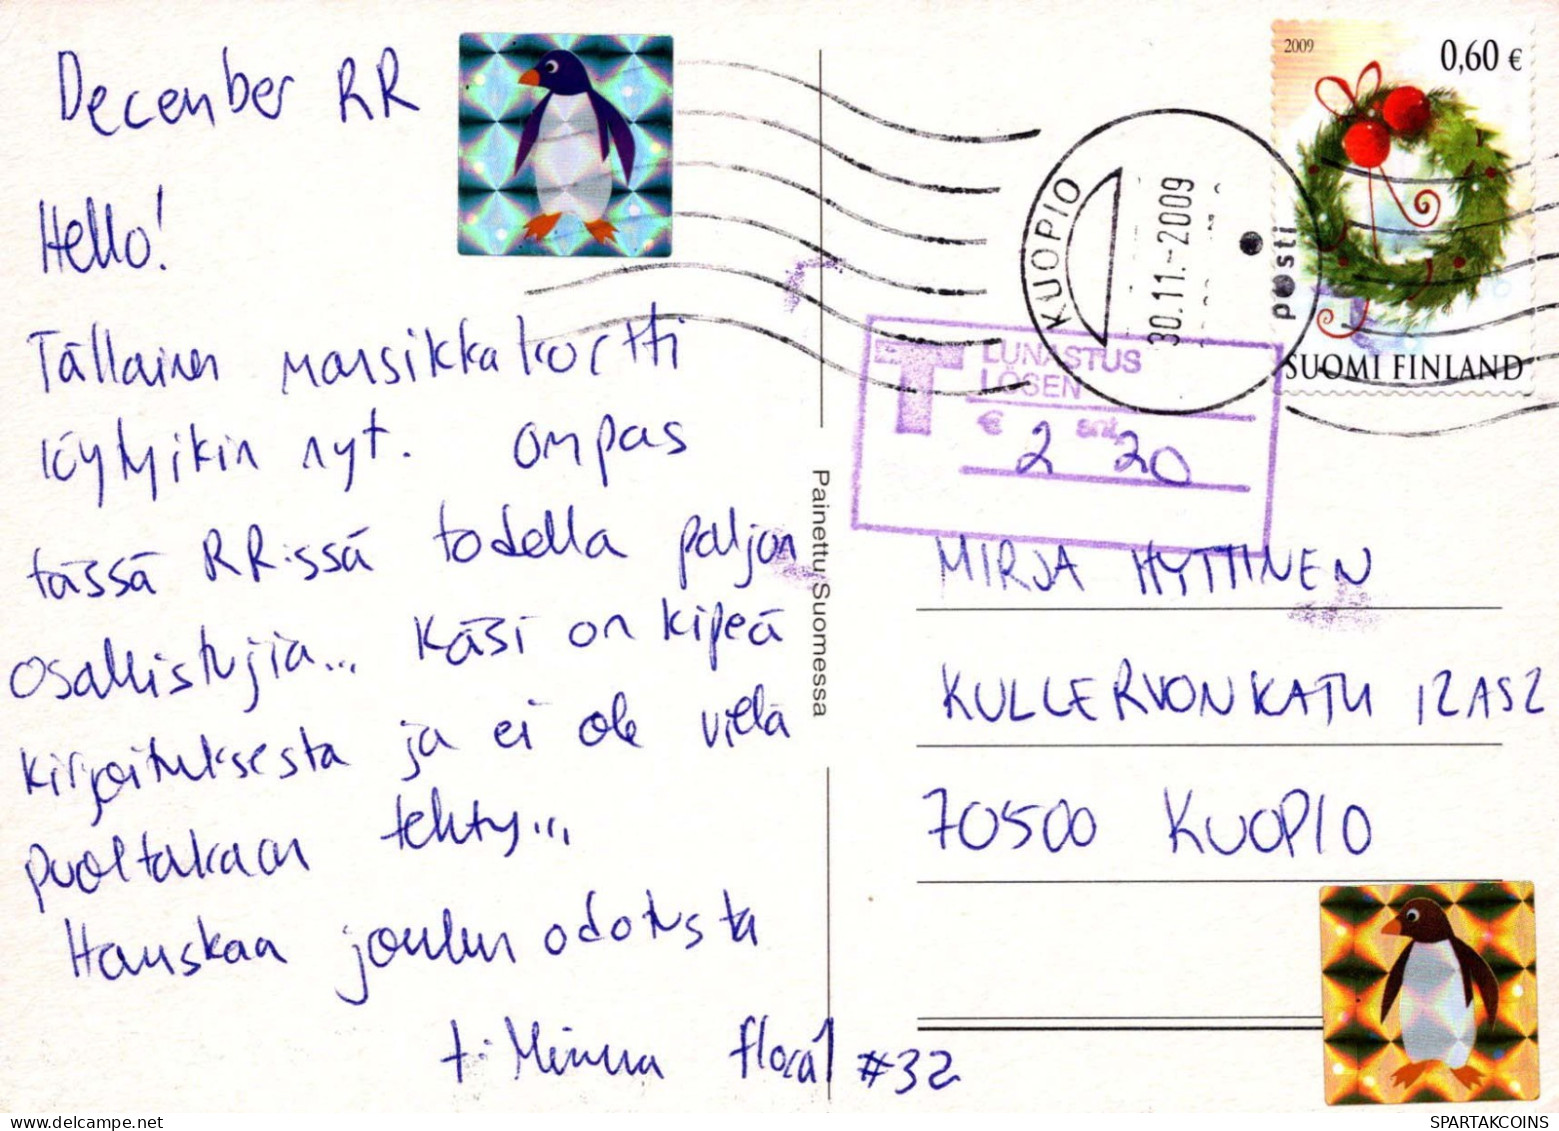 December RR
Hello!
Tällainen mansikkakortti
löytyikin nyt. Ompas
tässä RR:ssä todella paljon
osallistujia... Käsi on kipeä
kirjoituksesta ja ei ole vielä
puoltakaan tehty...
Hauskaa joulun odotusta
t: Minna floral #32
Painettu Suomessa
2009
0,60 €
SUOMI FINLAND
KUOPIO
30.11.-2009
posti
T LUNASTUS
LÖSEN
€ snt
2 20
MIRJA HYTTINEN
KULLERVONKATU 12AS2
70500 KUOPIO
SPARTAKCOINS